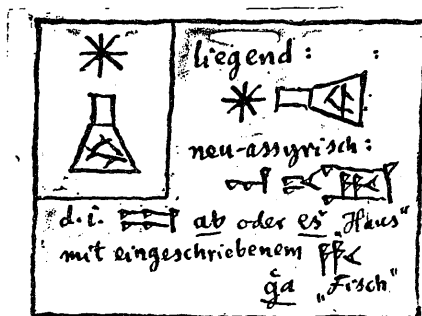 liegend :
neu-assyrisch :
d. i. 𒀊 ab oder eš „Haus“
mit eingeschriebenem 𒄩
ğa „Fisch“